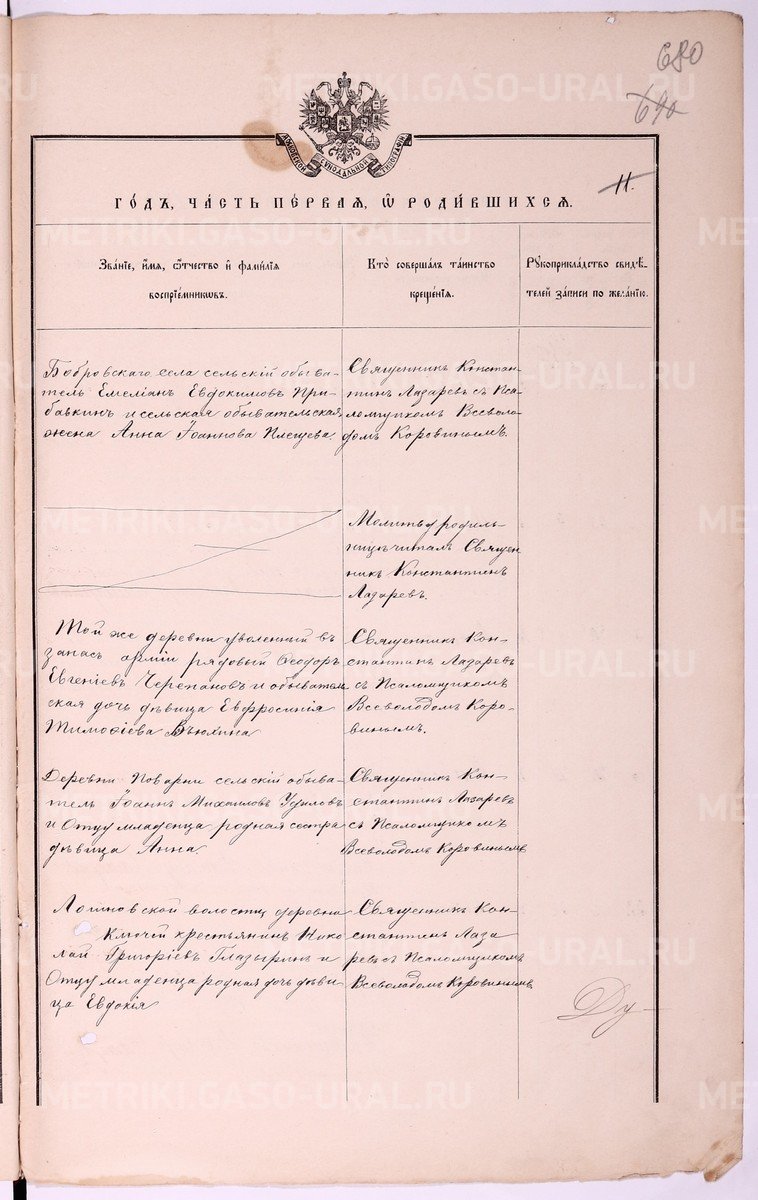 680
690
МОСКОВСКОЙ СУНОДАЛЬНОЙ ТИПОГРАФІИ
11.
ГО́ДЪ, ЧА́СТЬ ПЕ́РВАѦ, Ѡ҆ РОДИ́ВШИХСѦ.
Зва́нїе, и҆́мѧ, ѻ҆́тчество и҆ фами́лїѧ
воспрїе́мникѡвъ.
Кто̀ соверша́лъ та́инство
креще́нїѧ.
Рꙋкоприкла́дство свидѣ́-
телей за́писи по жела́нїю.
Бобровскаго села сельскій обыва-
тель Емеліанъ Евдокимовъ При-
бавкинъ и сельская обывательская
жена Анна Іоаннова Плещева.
Священникъ Констан-
тинъ Лазаревъ съ Пса-
ломщикомъ Всеволо-
домъ Коровинымъ.
Молитву родиль-
ницѣ читалъ Священ
никъ Константинъ
Лазаревъ.
Той же деревни уволенный въ
запасъ арміи рядовый Ѳеодоръ
Евгеніевъ Черепановъ и обыватель
ская дочь дѣвица Евфросинія
Тимоѳіева Вьюхина
Священникъ Кон-
стантинъ Лазаревъ
съ Псаломщикомъ
Всеволодомъ Коро-
винымъ.
Деревни Поварни сельскій обыва-
тель Іоаннъ Михаиловъ
и Отцу младенца родная сестра
дѣвица Анна.
Священникъ Кон-
стантинъ Лазаревъ
съ Псаломщикомъ
Всеволодомъ Коровинымъ
Логиновской волости, деревни
Ключи крестьянинъ Нико
лай Григоріевъ Глазыринъ и
Отцу младенца родная дочь дѣви-
ца Евдокія
Священникъ Кон-
стантинъ Лаза
ревъ съ Псаломщикомъ
Всеволодомъ Коровинымъ
METRIKI.GASO-URAL.RU